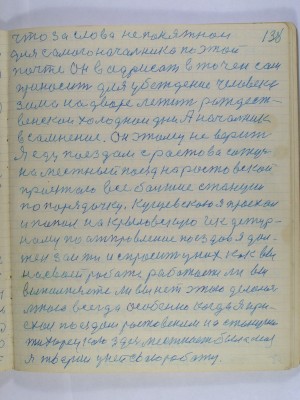 138
что за слова непонятном
для самого начальника поэтой
почте Он в адрисат в почен сам
приносит для убеждение человека
зима на дворе лежит рождест-
венской холодной дни А начальник
в самнение. Он этому не верит
Я еду поездам с ростова
на местный поезд на ростовской
все большие станции
по порядочку. Кущевскою я проехал
и попал на Крыловскую и к дежур-
ному по отправление поездов я дол-
жен зайти и спросит у них как вы
на своей работе работаете ли вы
выполняете ли вы нет этого делал
много всегда особенно когда я при-
ехал поездом ростовским на станцию
тихорецкою здесь местност была моя
я творил у нет свою работу.